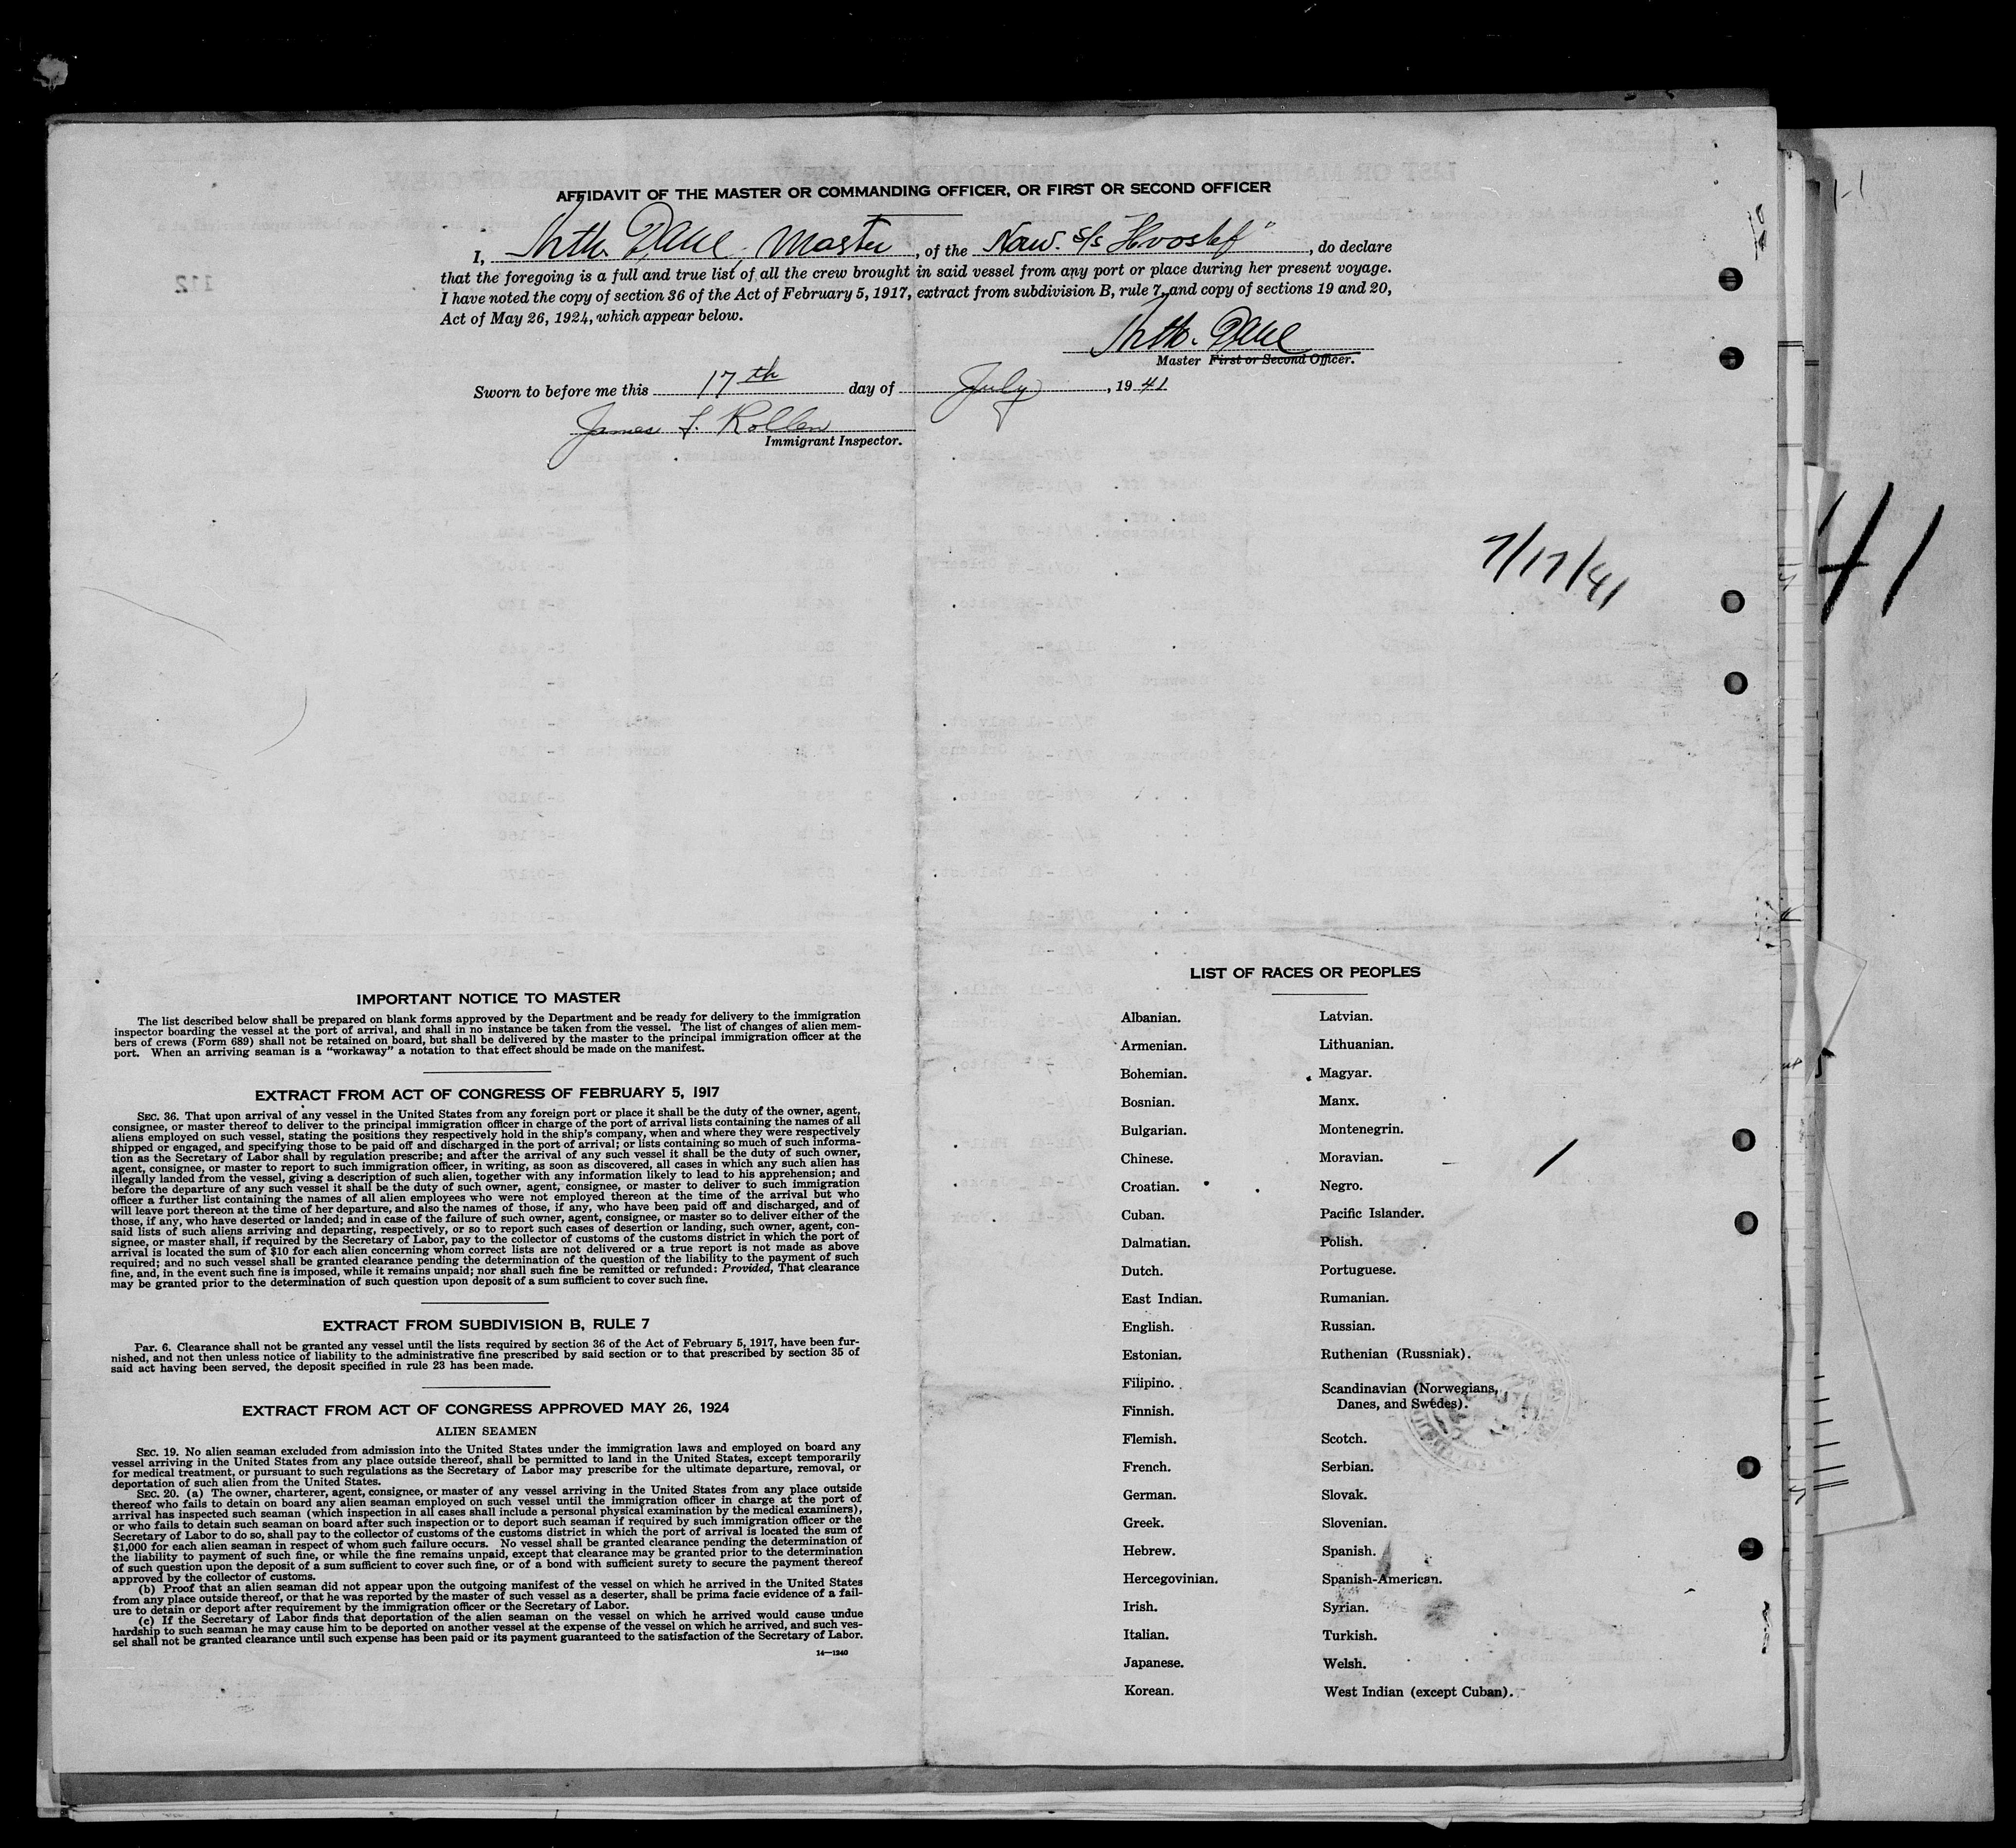 AFFIDAVIT OF THE MASTER OR COMMANDING OFFICER, OR FIRST OR SECOND OFFICER
I, Arth. Dahl, Master, of the Naw. S/S "Hvoslef", do declare
that the foregoing is a full and true list of all the crew brought in said vessel from any port or place during her present voyage.
I have noted the copy of section 36 of the Act of February 5, 1917, extract from subdivision B, rule 7, and copy of sections 19 and 20,
Act of May 26, 1924, which appear below.
Arth. Dahl
Master First or Second Officer.
Sworn to before me this 17th day of July, 1941
James
Immigrant Inspector.
7/17/41
41
IMPORTANT NOTICE TO MASTER
The list described below shall be prepared on blank forms approved by the Department and be ready for delivery to the immigration
inspector boarding the vessel at the port of arrival, and shall in no instance be taken from the vessel. The list of changes of alien mem-
bers of crews (Form 689) shall not be retained on board, but shall be delivered by the master to the principal immigration officer at the
port. When an arriving seaman is a "workaway" a notation to that effect should be made on the manifest.
EXTRACT FROM ACT OF CONGRESS OF FEBRUARY 5, 1917
SEC. 36. That upon arrival of any vessel in the United States from any foreign port or place it shall be the duty of the owner, agent,
consignee, or master thereof to deliver to the principal immigration officer in charge of the port of arrival lists containing the names of all
aliens employed on such vessel, stating the positions they respectively hold in the ship's company, when and where they were respectively
shipped or engaged, and specifying those to be paid off and discharged in the port of arrival; or lists containing so much of such informa-
tion as the Secretary of Labor shall by regulation prescribe; and after the arrival of any such vessel it shall be the duty of such owner,
agent, consignee, or master to report to such immigration officer, in writing, as soon as discovered, all cases in which any such alien has
illegally landed from the vessel, giving a description of such alien, together with any information likely to lead to his apprehension; and
before the departure of any such vessel it shall be the duty of such owner, agent, consignee, or master to deliver to such immigration
officer a further list containing the names of all alien employees who were not employed thereon at the time of the arrival but who
will leave port thereon at the time of her departure, and also the names of those, if any, who have been paid off and discharged, and of
those, if any, who have deserted or landed; and in case of the failure of such owner, agent, consignee, or master so to deliver either of the
said lists of such aliens arriving and departing, respectively, or so to report such cases of desertion or landing, such owner, agent, con-
signee, or master shall, if required by the Secretary of Labor, pay to the collector of customs of the customs district in which the port of
arrival is located the sum of $10 for each alien concerning whom correct lists are not delivered or a true report is not made as above
required; and no such vessel shall be granted clearance pending the determination of the question of the liability to the payment of such
fine, and, in the event such fine is imposed, while it remains unpaid; nor shall such fine be remitted or refunded: Provided, That clearance
may be granted prior to the determination of such question upon deposit of a sum sufficient to cover such fine.
EXTRACT FROM SUBDIVISION B, RULE 7
Par. 6. Clearance shall not be granted any vessel until the lists required by section 36 of the Act of February 5, 1917, have been fur-
nished, and not then unless notice of liability to the administrative fine prescribed by said section or to that prescribed by section 35 of
said act having been served, the deposit specified in rule 23 has been made.
EXTRACT FROM ACT OF CONGRESS APPROVED MAY 26, 1924
ALIEN SEAMEN
SEC. 19. No alien seaman excluded from admission into the United States under the immigration laws and employed on board any
vessel arriving in the United States from any place outside thereof, shall be permitted to land in the United States, except temporarily
for medical treatment, or pursuant to such regulations as the Secretary of Labor may prescribe for the ultimate departure, removal, or
deportation of such alien from the United States.
SEC. 20. (a) The owner, charterer, agent, consignee, or master of any vessel arriving in the United States from any place outside
thereof who fails to detain on board any alien seaman employed on such vessel until the immigration officer in charge at the port of
arrival has inspected such seaman (which inspection in all cases shall include a personal physical examination by the medical examiners),
or who fails to detain such seaman on board after such inspection or to deport such seaman if required by such immigration officer or the
Secretary of Labor to do so, shall pay to the collector of customs of the customs district in which the port of arrival is located the sum of
$1,000 for each alien seaman in respect of whom such failure occurs. No vessel shall be granted clearance pending the determination of
the liability to payment of such fine, or while the fine remains unpaid, except that clearance may be granted prior to the determination
of such question upon the deposit of a sum sufficient to cover such fine, or of a bond with sufficient surety to secure the payment thereof
approved by the collector of customs.
(b) Proof that an alien seaman did not appear upon the outgoing manifest of the vessel on which he arrived in the United States
from any place outside thereof, or that he was reported by the master of such vessel as a deserter, shall be prima facie evidence of a fail-
ure to detain or deport after requirement by the immigration officer or the Secretary of Labor.
(c) If the Secretary of Labor finds that deportation of the alien seaman on the vessel on which he arrived would cause undue
hardship to such seaman he may cause him to be deported on another vessel at the expense of the vessel on which he arrived, and such ves-
sel shall not be granted clearance until such expense has been paid or its payment guaranteed to the satisfaction of the Secretary of Labor.
14—1240
LIST OF RACES OR PEOPLES
Albanian. Latvian.
Armenian. Lithuanian.
Bohemian. Magyar.
Bosnian. Manx.
Bulgarian. Montenegrin.
Chinese. Moravian.
Croatian. Negro.
Cuban. Pacific Islander.
Dalmatian. Polish.
Dutch. Portuguese.
East Indian. Rumanian.
English. Russian.
Estonian. Ruthenian (Russniak).
Filipino. Scandinavian (Norwegians,
Finnish. Danes, and Swedes).
Flemish. Scotch.
French. Serbian.
German. Slovak.
Greek. Slovenian.
Hebrew. Spanish.
Hercegovinian. Spanish-American.
Irish. Syrian.
Italian. Turkish.
Japanese. Welsh.
Korean. West Indian (except Cuban).